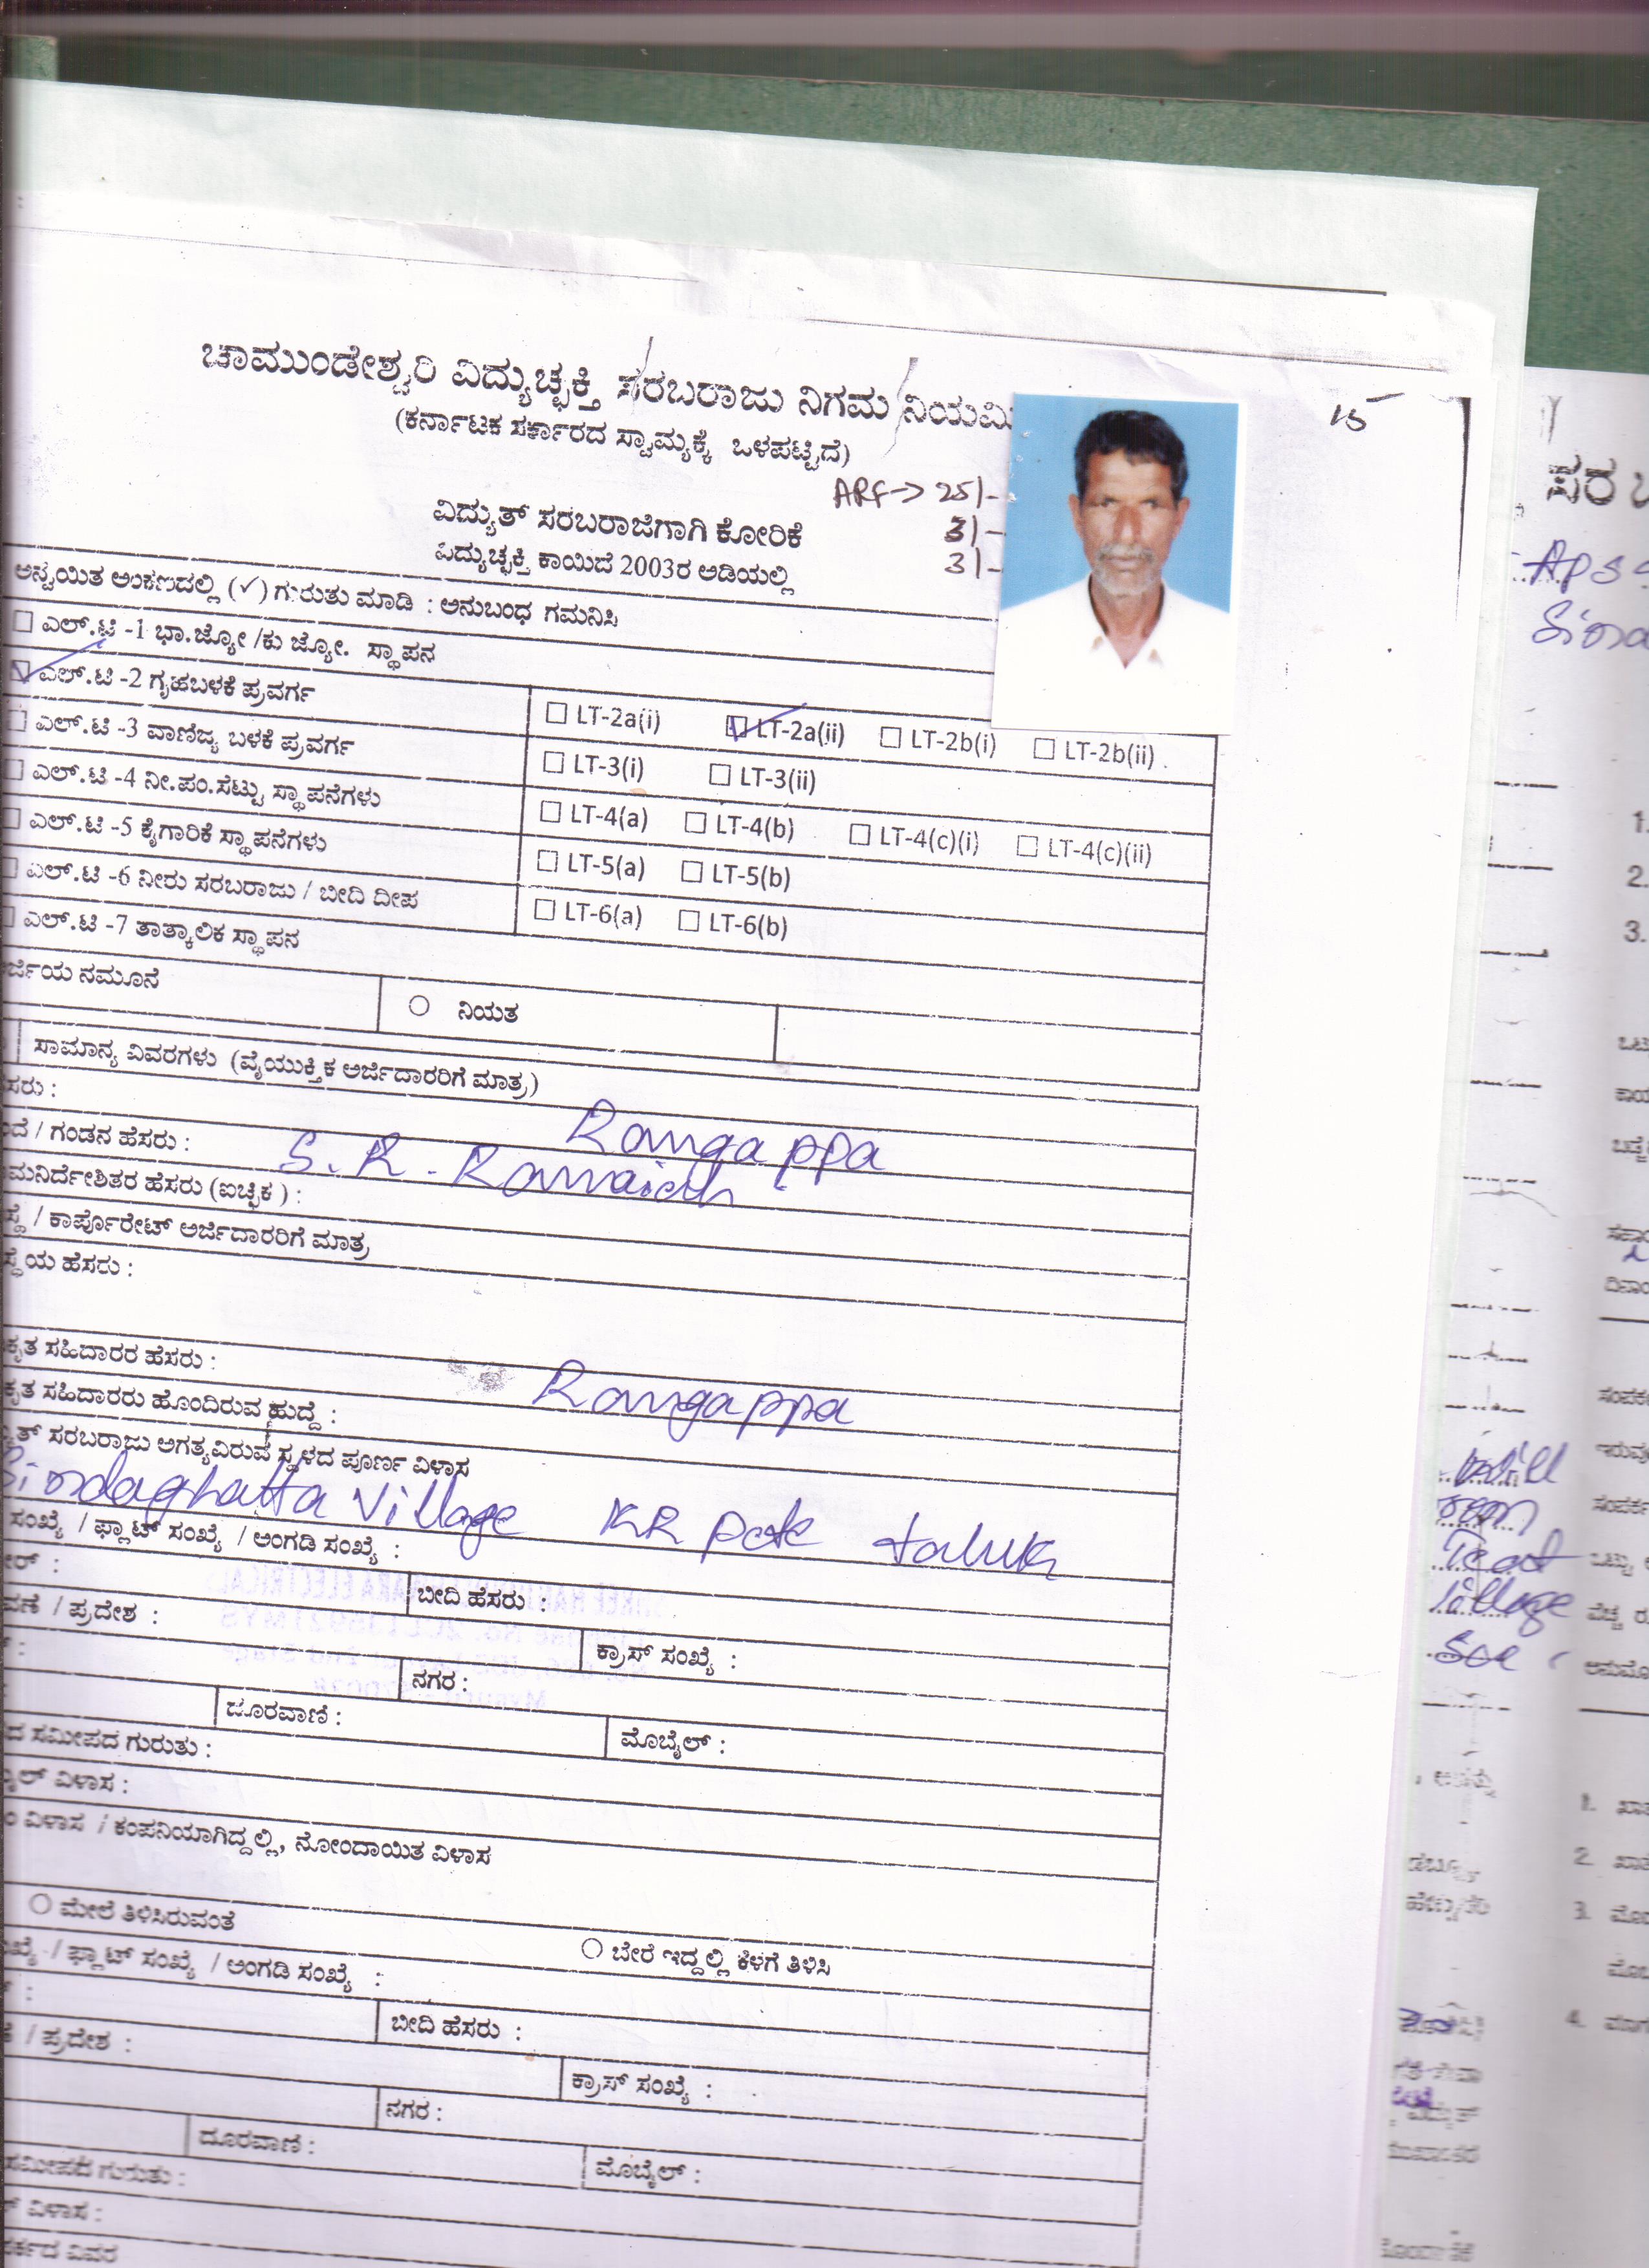 ಚಾಮುಂಡೇಶ್ವರಿ ವಿದ್ಯುಚ್ಛಕ್ತಿ ಸರಬರಾಜು ನಿಗಮ ನಿಯಮಿ
15
(ಕರ್ನಾಟಕ ಸರ್ಕಾರದ ಸ್ವಾಮ್ಯಕ್ಕೆ ಒಳಪಟ್ಟಿದೆ)
ARF→ 25/-
ವಿದ್ಯುತ್ ಸರಬರಾಜಿಗಾಗಿ ಕೋರಿಕೆ 3/-
ವಿದ್ಯುಚ್ಛಕ್ತಿ ಕಾಯಿದೆ 2003ರ ಅಡಿಯಲ್ಲಿ 3/-
ಅನ್ವಯಿತ ಅಂಕಣದಲ್ಲಿ (✓) ಗುರುತು ಮಾಡಿ : ಅನುಬಂಧ ಗಮನಿಸಿ
ಎಲ್.ಟಿ -1 ಭಾ.ಜ್ಯೋ /ಕು ಜ್ಯೋ. ಸ್ಥಾಪನ
ಎಲ್.ಟಿ -2 ಗೃಹಬಳಕೆ ಪ್ರವರ್ಗ LT-2a(i) LT-2a(ii) LT-2b(i) LT-2b(ii)
ಎಲ್.ಟಿ -3 ವಾಣಿಜ್ಯ ಬಳಕೆ ಪ್ರವರ್ಗ LT-3(i) LT-3(ii)
ಎಲ್.ಟಿ -4 ನೀ.ಪಂ.ಸೆಟ್ಟು ಸ್ಥಾಪನೆಗಳು LT-4(a) LT-4(b) LT-4(c)(i) LT-4(c)(ii)
ಎಲ್.ಟಿ -5 ಕೈಗಾರಿಕೆ ಸ್ಥಾಪನೆಗಳು LT-5(a) LT-5(b)
ಎಲ್.ಟಿ -6 ನೀರು ಸರಬರಾಜು / ಬೀದಿ ದೀಪ LT-6(a) LT-6(b)
ಎಲ್.ಟಿ -7 ತಾತ್ಕಾಲಿಕ ಸ್ಥಾಪನ
ರ್ಜಿಯ ನಮೂನೆ ನಿಯತ
ಸಾಮಾನ್ಯ ವಿವರಗಳು (ವೈಯುಕ್ತಿಕ ಅರ್ಜಿದಾರರಿಗೆ ಮಾತ್ರ)
ಸರು : Rangappa
ದೆ / ಗಂಡನ ಹೆಸರು : S.R. Ramaiah
ಮನಿರ್ದೇಶಿತರ ಹೆಸರು (ಐಚ್ಛಿಕ ) :
ಸ್ಥೆ / ಕಾರ್ಪೊರೇಟ್ ಅರ್ಜಿದಾರರಿಗೆ ಮಾತ್ರ
ಸ್ಥೆಯ ಹೆಸರು :
ಕೃತ ಸಹಿದಾರರ ಹೆಸರು : Rangappa
ಕೃತ ಸಹಿದಾರರು ಹೊಂದಿರುವ ಹುದ್ದೆ :
ತ್ ಸರಬರಾಜು ಅಗತ್ಯವಿರುವ ಸ್ಥಳದ ಪೂರ್ಣ ವಿಳಾಸ
Sindaghatta Village KR pete taluk
ಸಂಖ್ಯೆ / ಫ್ಲಾಟ್ ಸಂಖ್ಯೆ / ಅಂಗಡಿ ಸಂಖ್ಯೆ :
ರ್ : ಬೀದಿ ಹೆಸರು :
ವಣೆ / ಪ್ರದೇಶ : ಕ್ರಾಸ್ ಸಂಖ್ಯೆ :
ನಗರ :
ದೂರವಾಣಿ : ಮೊಬೈಲ್ :
ದ ಸಮೀಪದ ಗುರುತು :
ೈಲ್ ವಿಳಾಸ :
ಂ ವಿಳಾಸ / ಕಂಪನಿಯಾಗಿದ್ದಲ್ಲಿ, ನೋಂದಾಯಿತ ವಿಳಾಸ
ಮೇಲೆ ತಿಳಿಸಿರುವಂತೆ ಬೇರೆ ಇದ್ದಲ್ಲಿ ಕೆಳಗೆ ತಿಳಿಸಿ
ಂಖ್ಯೆ / ಫ್ಲಾಟ್ ಸಂಖ್ಯೆ / ಅಂಗಡಿ ಸಂಖ್ಯೆ :
ಬೀದಿ ಹೆಸರು :
ಣೆ / ಪ್ರದೇಶ : ಕ್ರಾಸ್ ಸಂಖ್ಯೆ :
ನಗರ :
ದೂರವಾಣಿ : ಮೊಬೈಲ್ :
ಸಮೀಪದ ಗುರುತು :
ವಿಳಾಸ :
ರ್ಕದ ವಿವರ